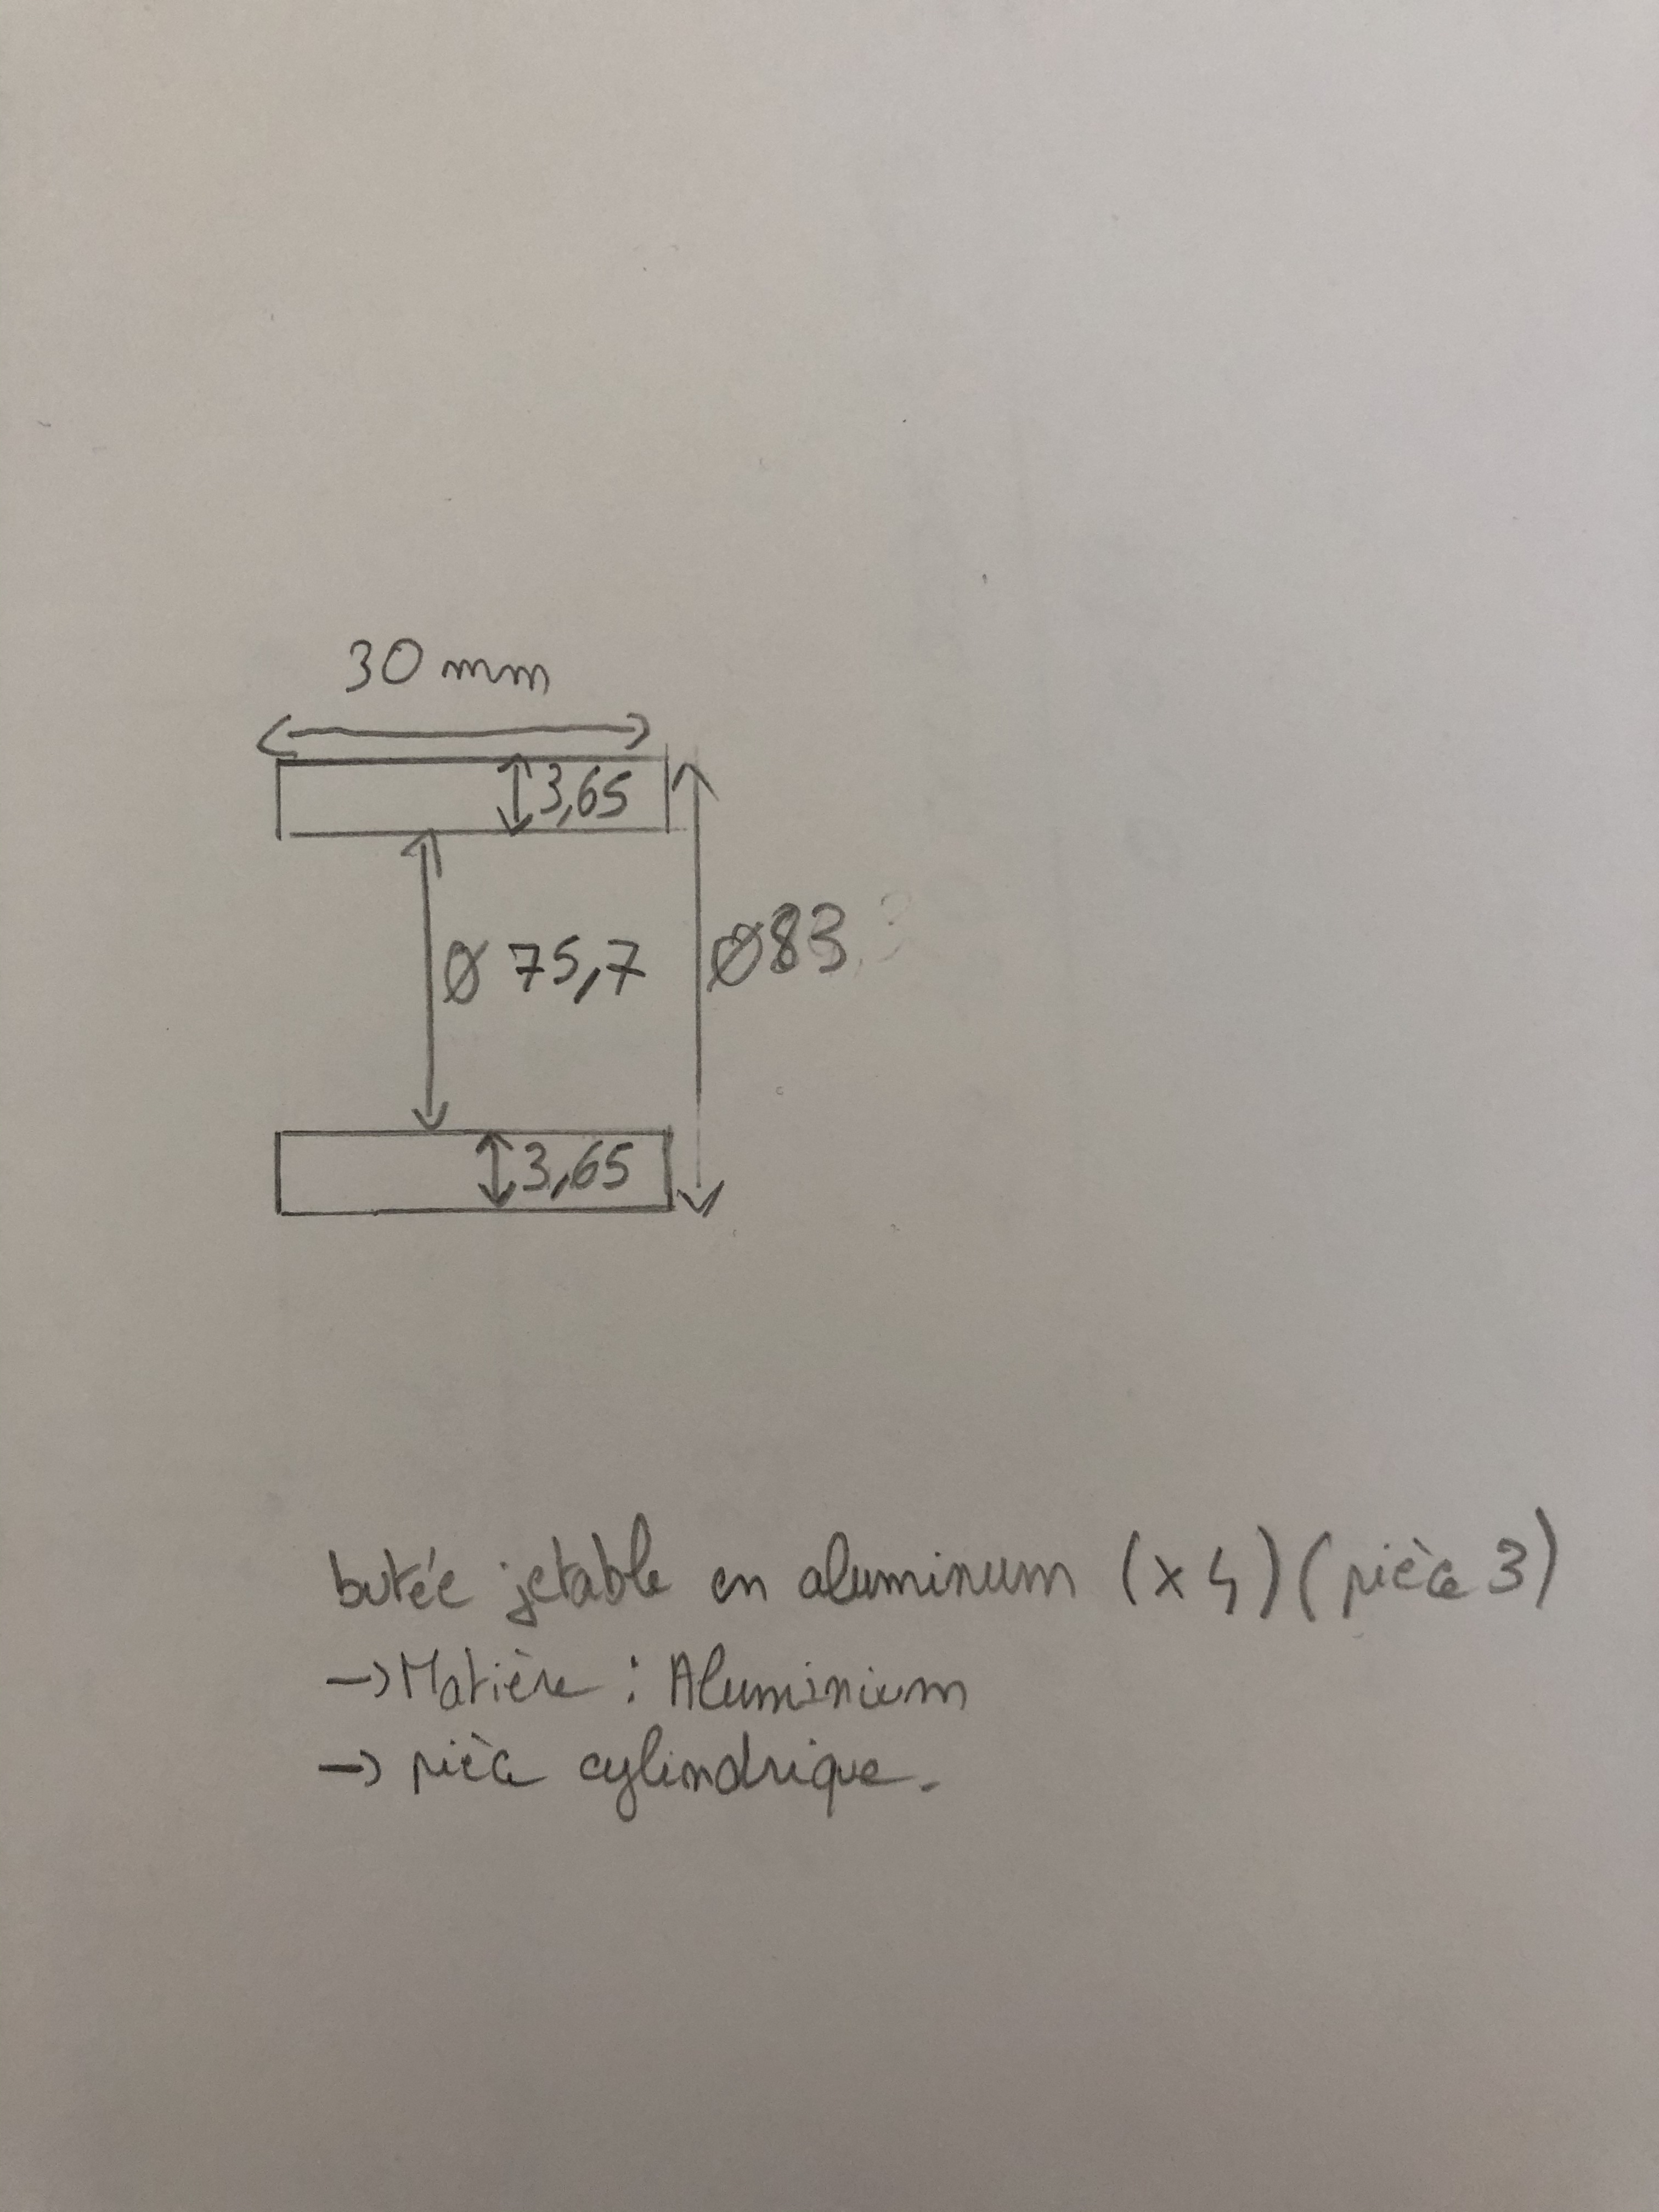 30 mm
3,65
Ø 75,7
Ø83
3,65
butée jetable en aluminum (x 4) (pièce 3)
→ Matière : Aluminium
→ pièce cylindrique.